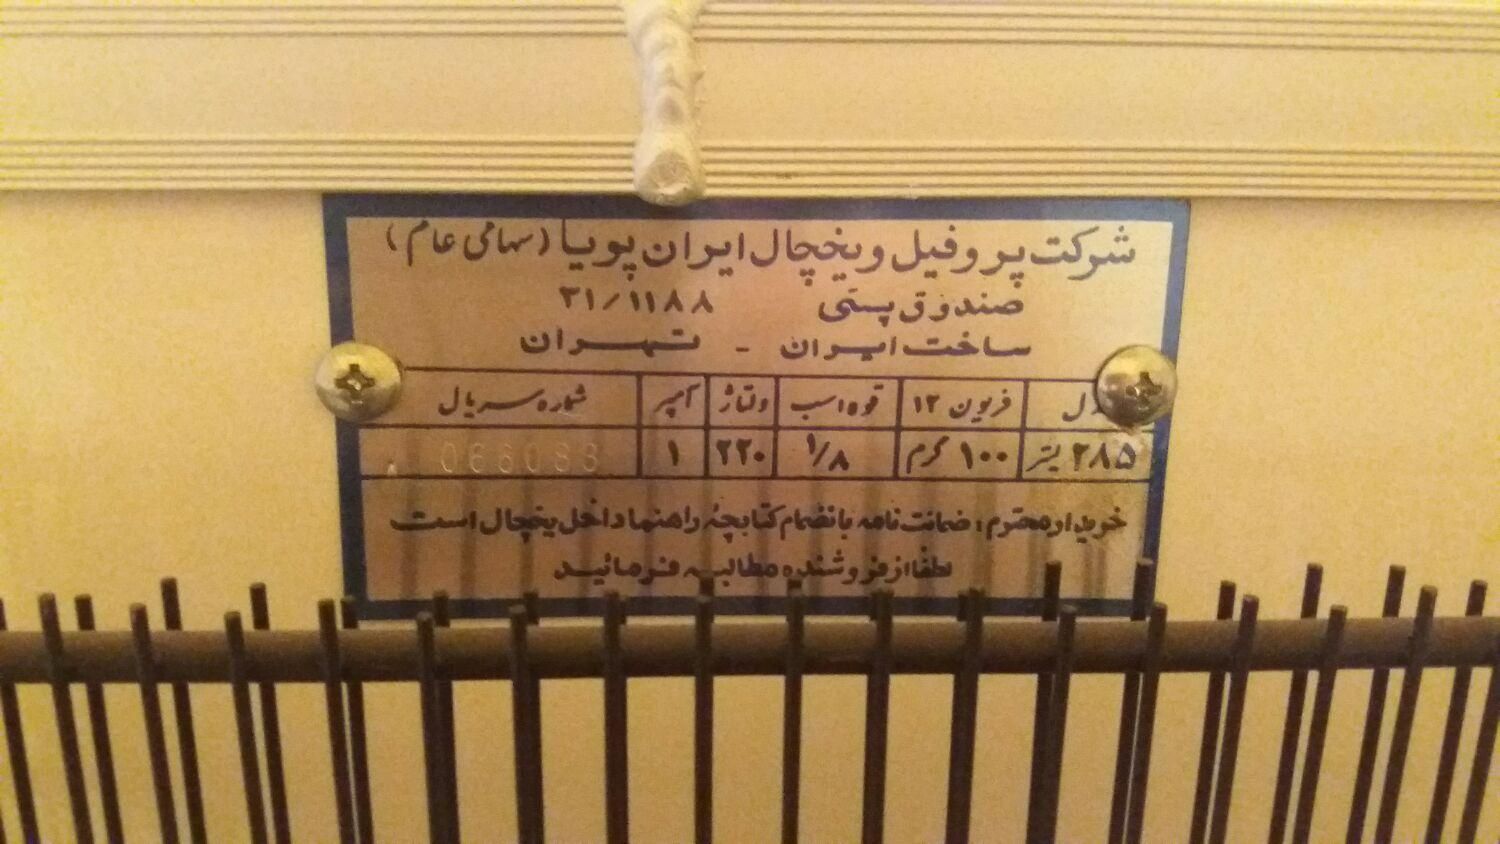 شرکت پروفیل و یخچال ایران پویا (سهامی عام)
صندوق پستی ۳۱/۱۱۸۸
ساخت ایران - تهران
فریون ۱۲ قوه اسب ولتاژ آمپر شماره سریال
۲۸۵ لیتر ۱۰۰ گرم ۱/۸ ۲۲۰ ۱ 066088
خریدار محترم: ضمانت نامه بانضمام کتابچه راهنما داخل یخچال است
لطفا از فروشنده مطالبه فرمائید